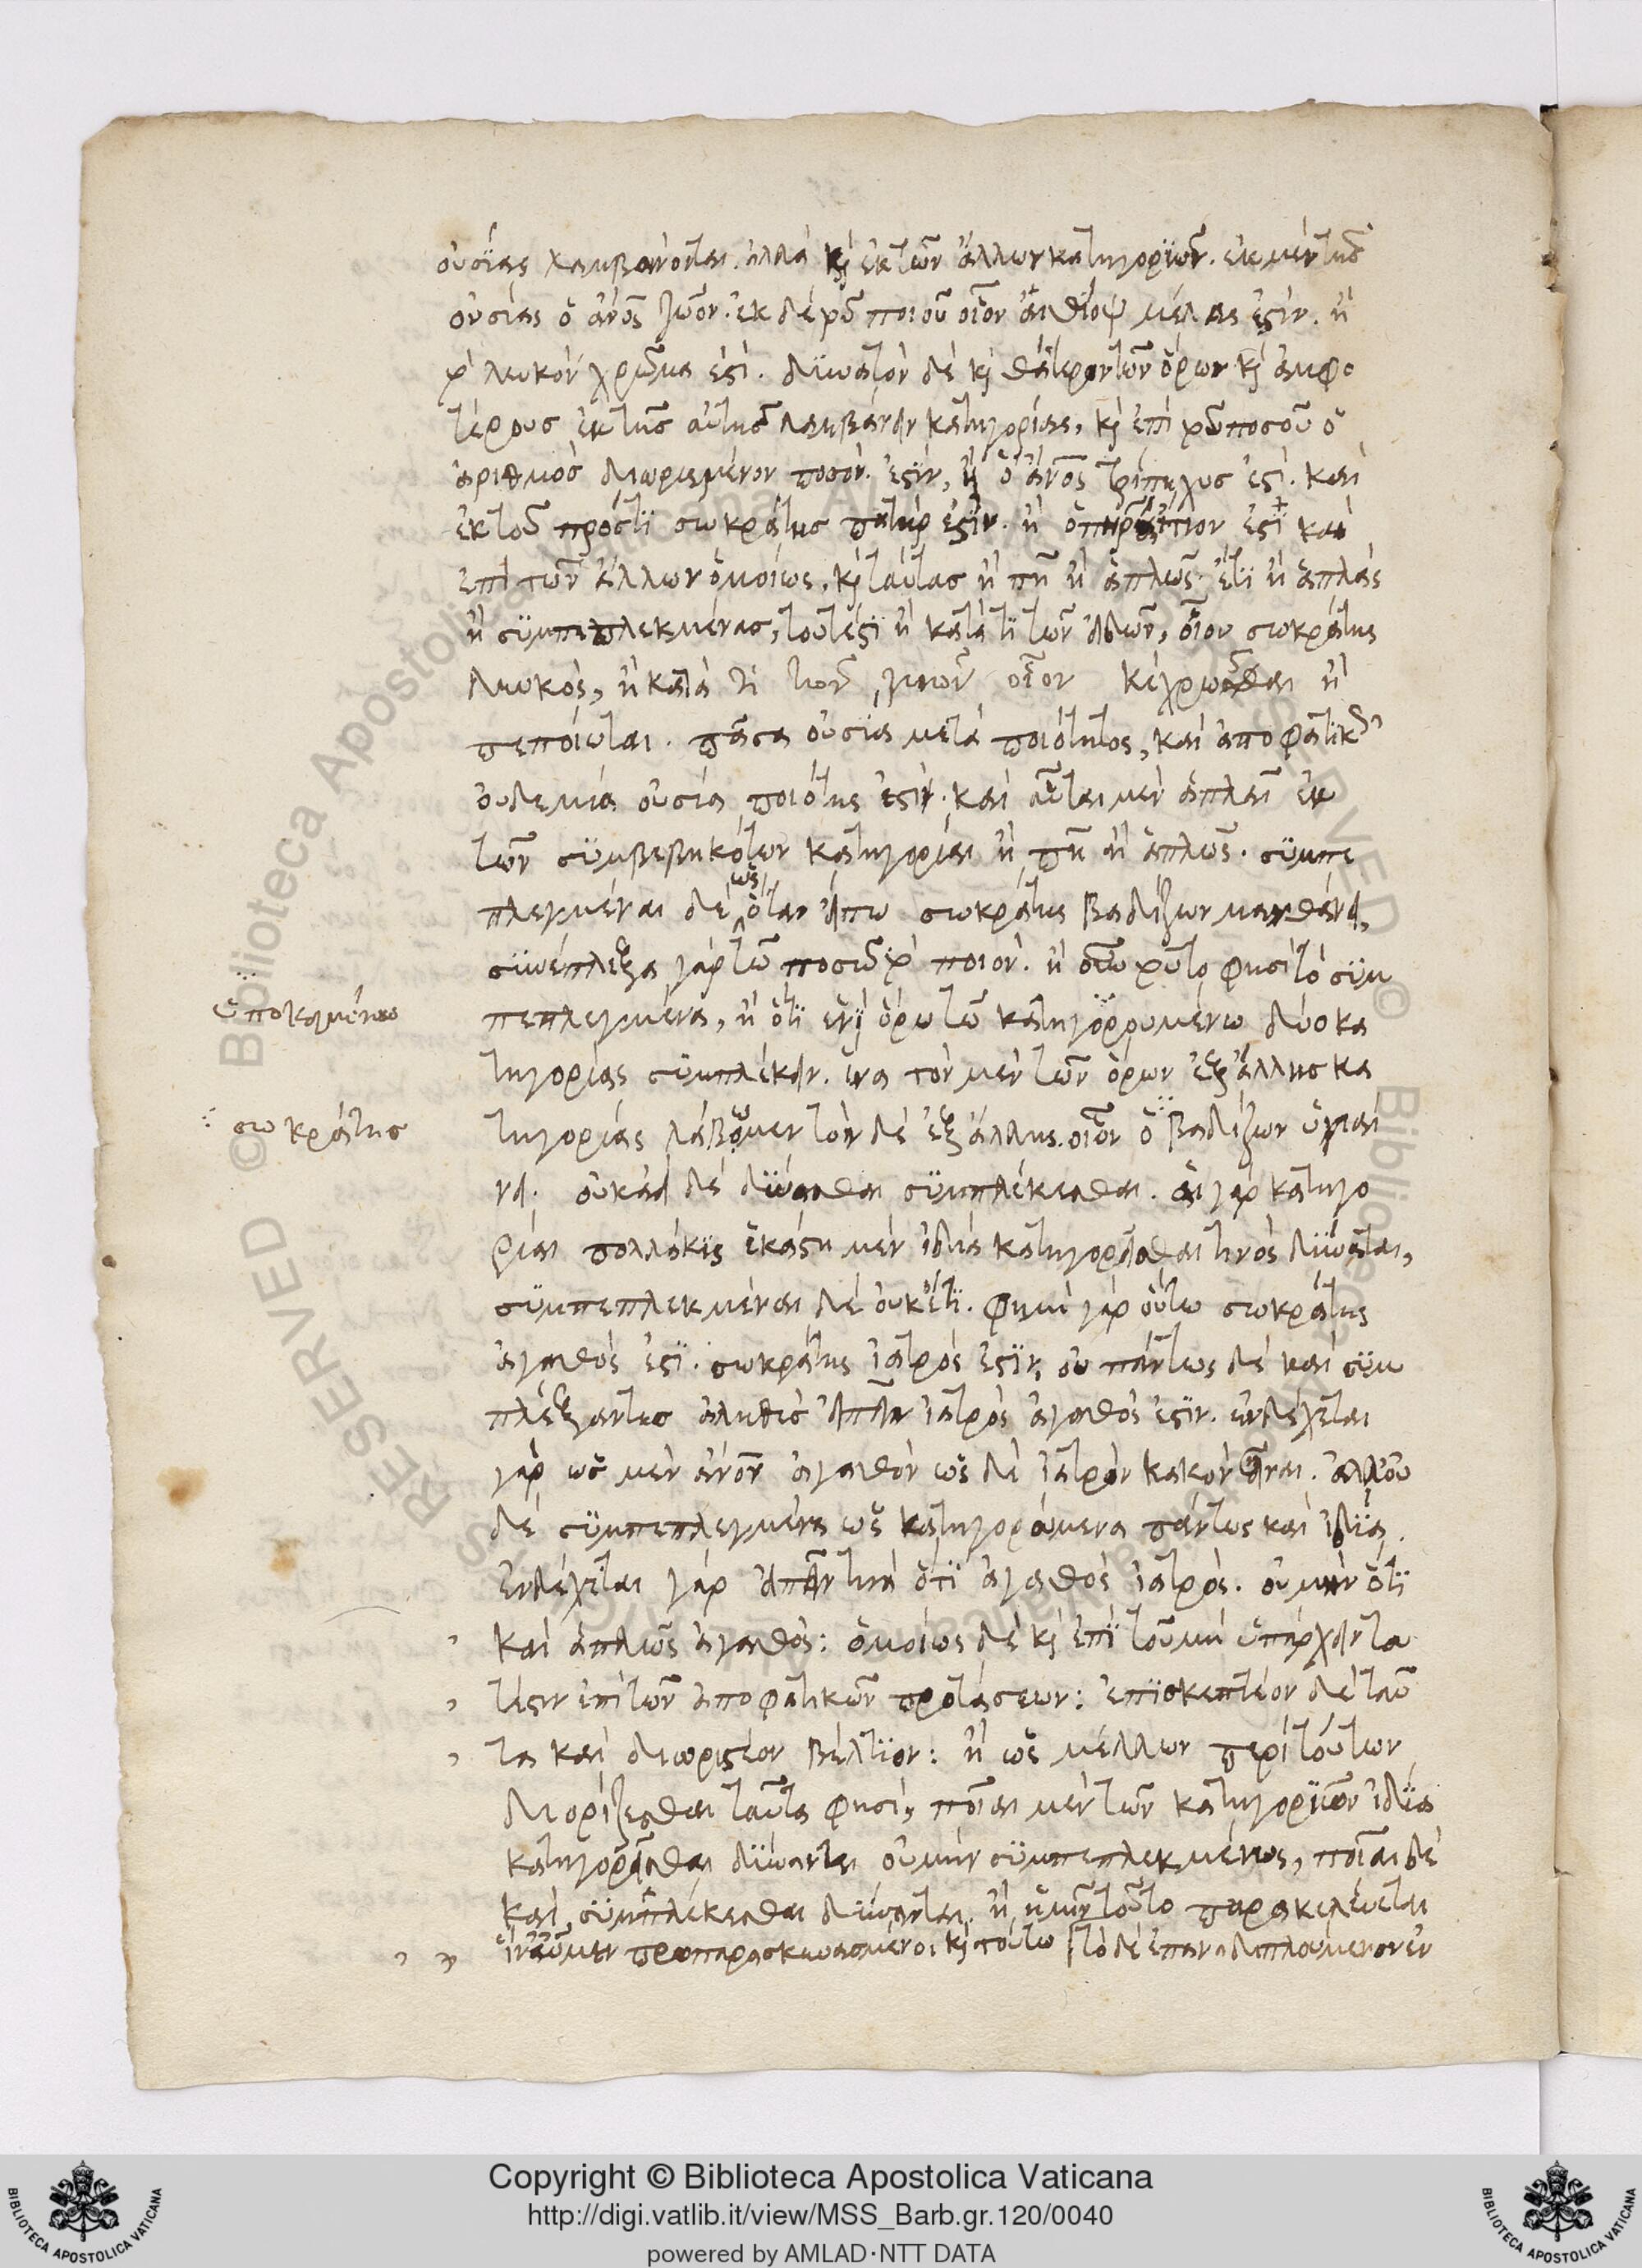 οὐσίας λαμβάνονται. ἀλλὰ κὶ ἐκ τῶν ἄλλων κατηγοριῶν. ἐκ μὲν τῆς
οὐσίας ὁ ἄνος ζῶον. ἐκ δὲ τοῦ ποιοῦ οἷον αἰθίοψ μέλας ἐστίν. ἢ
τὸ λευκὸν χρῶμα ἐστί. δυνατὸν δὲ κὶ θάτερον τῶν ὅρων κὶ ἀμφο
τέρους ἐκ τῆς αὐτῆς λαμβάνειν κατηγορίας, κὶ ἐπὶ τοῦ ποσοῦ ὁ
ἀριθμὸς διωρισμένον ποσόν ἐστιν, ἢ ὁ ἄνος τρίπηχυς ἐστί. καὶ
ἐκ τοῦ πρόστι σωκράτης πατήρ ἐστιν. ἢ ἐστὶ καὶ
ἐπὶ τῶν ἄλλων ὁμοίως. κὶ ταύτας ἢ πῆ ἢ ἁπλῶς. ἔτι ἢ ἁπλὰς
ἢ συμπεπλεκμένας, τουτέστι ἢ κατά τι τῶν εἰδῶν, οἷον σωκράτης
λευκός, ἢ κατά τι τῶν γενῶν οἷον κεχρῶσθαι ἢ
πεποίωται. πᾶσα οὐσία μετὰ ποιότητος, καὶ ἀποφατικ
οὐδεμία οὐσία ποιότης ἐστίν. καὶ αὗται μὲν ἁπλαῖ ἐκ
τῶν συμβεβηκότων κατηγορίαι ἢ πῆ ἢ ἁπλῶς. συμπε
πλεγμέναι δὲ ὡς ὅταν εἴπω σωκράτης βαδίζων μανθάνει,
συνέπλεξα γὰρ τῶ ποσῶ τὸ ποιόν. ἢ οὕτω τοῦτο φησὶ τὸ συμ
ὑποκειμένω
πεπλεγμένα, ἢ ὅτι ἑνὶ ὅρω τῶ κατηγορουμένω δύο κα
τηγορίας συμπλέκειν. ἵνα τὸν μὲν τῶν ὅρων ἐξ ἄλλης κα
σωκράτης
τηγορίας λάβωμεν τὸν δὲ ἐξ ἄλλης. οἷον ὁ βαδίζων ὑγιαί
νει. οὐκ ἀεὶ δὲ δύνασθαι συμπλέκεσθαι. αἱ γὰρ κατηγο
ρίαι πολλάκις ἑκάστη μὲν ἰδία κατηγορεῖσθαι τινὸς δύναται,
συμπεπλεκμέναι δὲ οὐκέτι. φημὶ γὰρ οὕτω σωκράτης
ἀγαθὸς ἐστί. σωκράτης ἰατρὸς ἐστίν, οὐ πάντως δὲ καὶ συμ
πλέξαντες ἀληθὲς εἰπεῖν ἰατρὸς ἀγαθὸς ἐστιν. ἐνδέχεται
γὰρ ὡς μὲν ἄνον ἀγαθὸν ὡς δὲ ἰατρὸν κακὸν εἶναι. ἀλλ' οὐ
δὲ συμπεπλεγμένα ὡς κατηγορούμενα πάντως καὶ ἰδία.
ἐνδέχεται γὰρ εἰπεῖν τινὰ ὅτι ἀγαθὸς ἰατρός. οὐ μὴν ὅτι
καὶ ἁπλῶς ἀγαθός: ὁμοίως δὲ κὶ ἐπὶ τοῦ μὴ ὑπάρχειν του
τέστιν ἐπὶ τῶν ἀποφατικῶν προτάσεων: ἐπισκεπτέον δὲ ταῦ
τα καὶ διοριστέον βέλτιον: ἢ ὡς μέλλων περὶ τούτων
διορίζεσθαι ταῦτα φησί, ποῖαι μὲν τῶν κατηγοριῶν ἰδία
κατηγορεῖσθαι δύνανται οὐ μὴν συμπεπλεκμένως, ποῖαι δὲ
καὶ συμπλέκεσθαι δύνανται. ἢ ἡμῖν τοῦτο παρακελεύεται
ἵν' ὦμεν προπαρασκευασμένοι κὶ τούτω τὸ δὲ ἐπαναδιπλούμενον ἐν
© Biblioteca Apostolica Vaticana
RESERVED
Copyright © Biblioteca Apostolica Vaticana
http://digi.vatlib.it/view/MSS_Barb.gr.120/0040
powered by AMLAD·NTT DATA
BIBLIOTECA APOSTOLICA VATICANA
BIBLIOTECA APOSTOLICA VATICANA